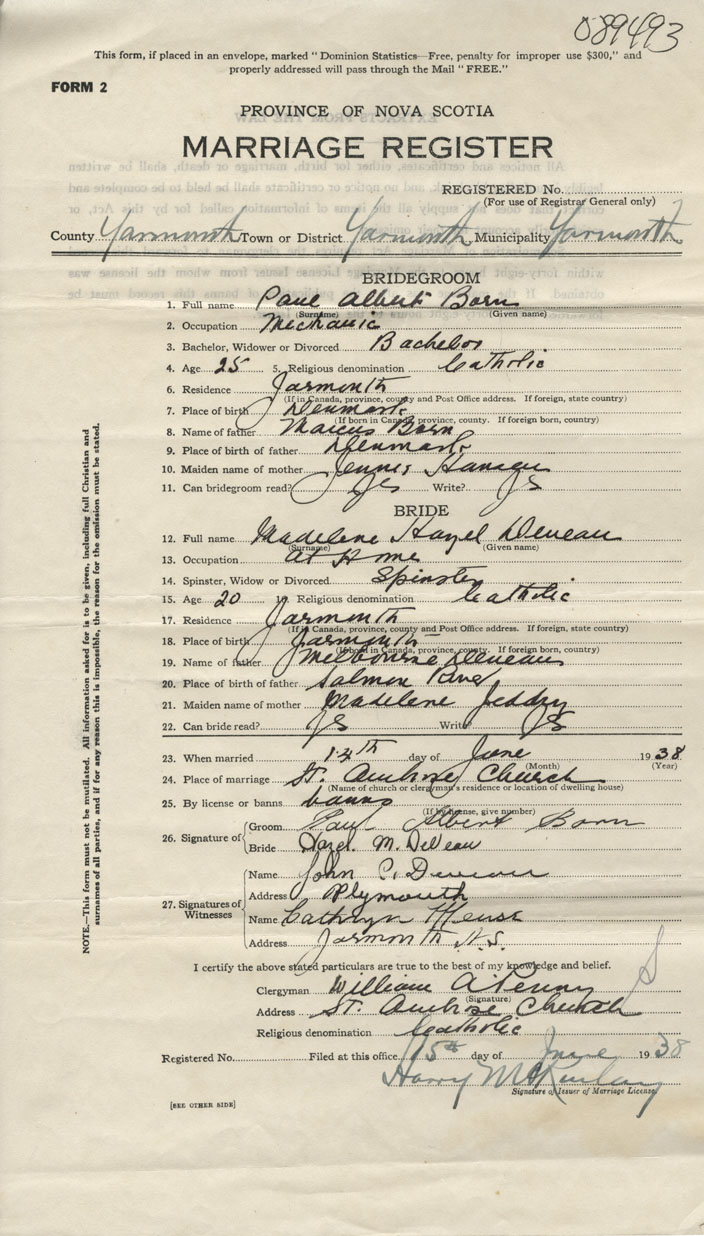 089493
This form, if placed in an envelope, marked "Dominion Statistics—Free, penalty for improper use $300," and
properly addressed will pass through the Mail "FREE."
FORM 2
PROVINCE OF NOVA SCOTIA
MARRIAGE REGISTER
REGISTERED No.
(For use of Registrar General only)
County Yarmouth Town or District Yarmouth Municipality Yarmouth
BRIDEGROOM
1. Full name Paul Albert Born
(Surname) (Given name)
2. Occupation Mechanic
3. Bachelor, Widower or Divorced Bachelor
4. Age 25 5. Religious denomination Catholic
6. Residence Yarmouth
(If in Canada, province, county and Post Office address. If foreign, state country)
7. Place of birth Denmark
(If born in Canada, province, county. If foreign born, country)
8. Name of father Marcus Born
9. Place of birth of father Denmark
10. Maiden name of mother
11. Can bridegroom read? Yes Write? Yes
BRIDE
12. Full name Madelene Hazel Deveau
(Surname) (Given name)
13. Occupation At Home
14. Spinster, Widow or Divorced Spinster
15. Age 20 Religious denomination Catholic
17. Residence Yarmouth
(If in Canada, province, county and Post Office address. If foreign, state country)
18. Place of birth Yarmouth
(If born in Canada, province, county. If foreign born, country)
19. Name of father Melbourne Deveau
20. Place of birth of father Salmon River
21. Maiden name of mother Madelene Jeddry
22. Can bride read? Yes Write Yes
23. When married day of June 1938
(Month) (Year)
24. Place of marriage St. Ambrose Church
(Name of church or clergyman's residence or location of dwelling house)
25. By license or banns banns
(If by license, give number)
26. Signature of Groom Paul Albert Born
Bride Hazel M. DeVeau
27. Signatures of Witnesses Name John C. Deveau
Address Plymouth
Name Cathryn Meuse
Address Yarmouth N.S.
I certify the above stated particulars are true to the best of my knowledge and belief.
Clergyman William A Penny
(Signature)
Address St. Ambrose Church
Religious denomination Catholic
Registered No. Filed at this office 15th day of June 1938
Harry McKinlay
Signature of Issuer of Marriage License
[SEE OTHER SIDE]
NOTE.—This form must not be mutilated. All information asked for is to be given, including full Christian and
surnames of all parties, and if for any reason this is impossible, the reason for the omission must be stated.